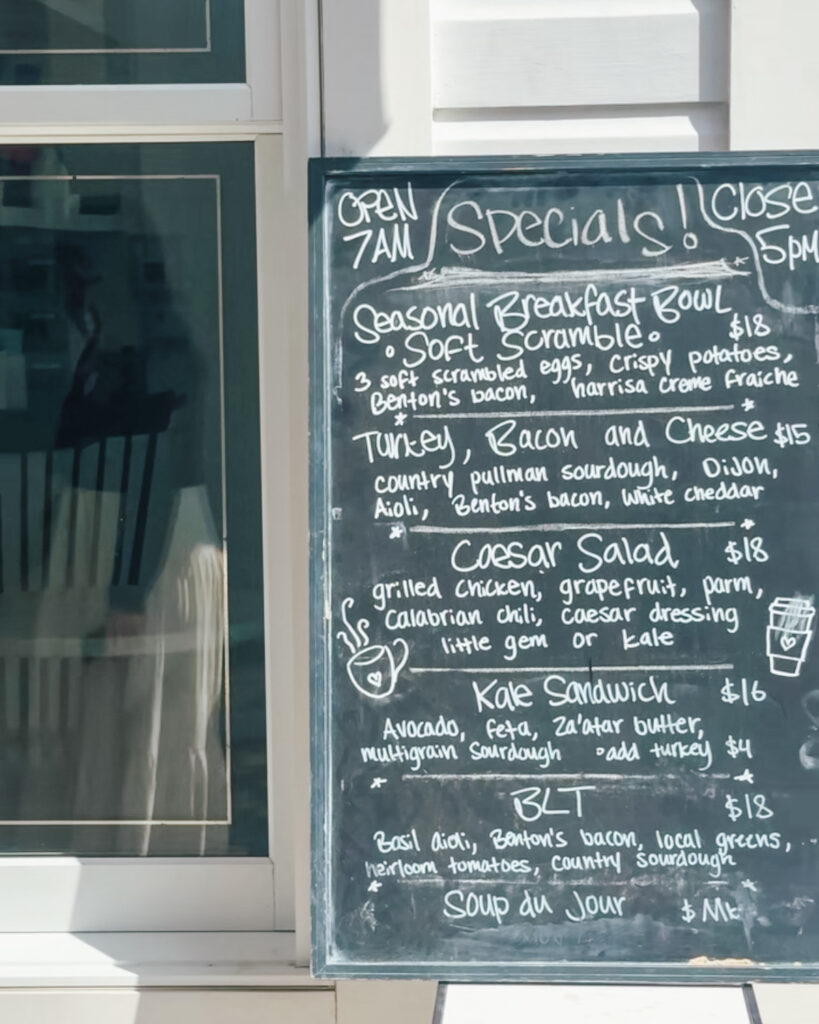 OPEN Specials! CLOSE
7AM 5pm
Seasonal Breakfast Bowl
• Soft Scramble • $18
3 soft scrambled eggs, crispy potatoes,
Benton's bacon, harrisa creme fraiche
Turkey, Bacon and Cheese $15
country pullman sourdough, Dijon,
Aioli, Benton's bacon, white cheddar
Caesar Salad $18
grilled chicken, grapefruit, parm,
calabrian chili, caesar dressing
little gem or kale
Kale Sandwich $16
Avocado, feta, za'atar butter,
multigrain sourdough • add turkey $4
BLT $18
Basil aioli, Benton's bacon, local greens,
heirloom tomatoes, country sourdough
Soup du Jour $ Mkt